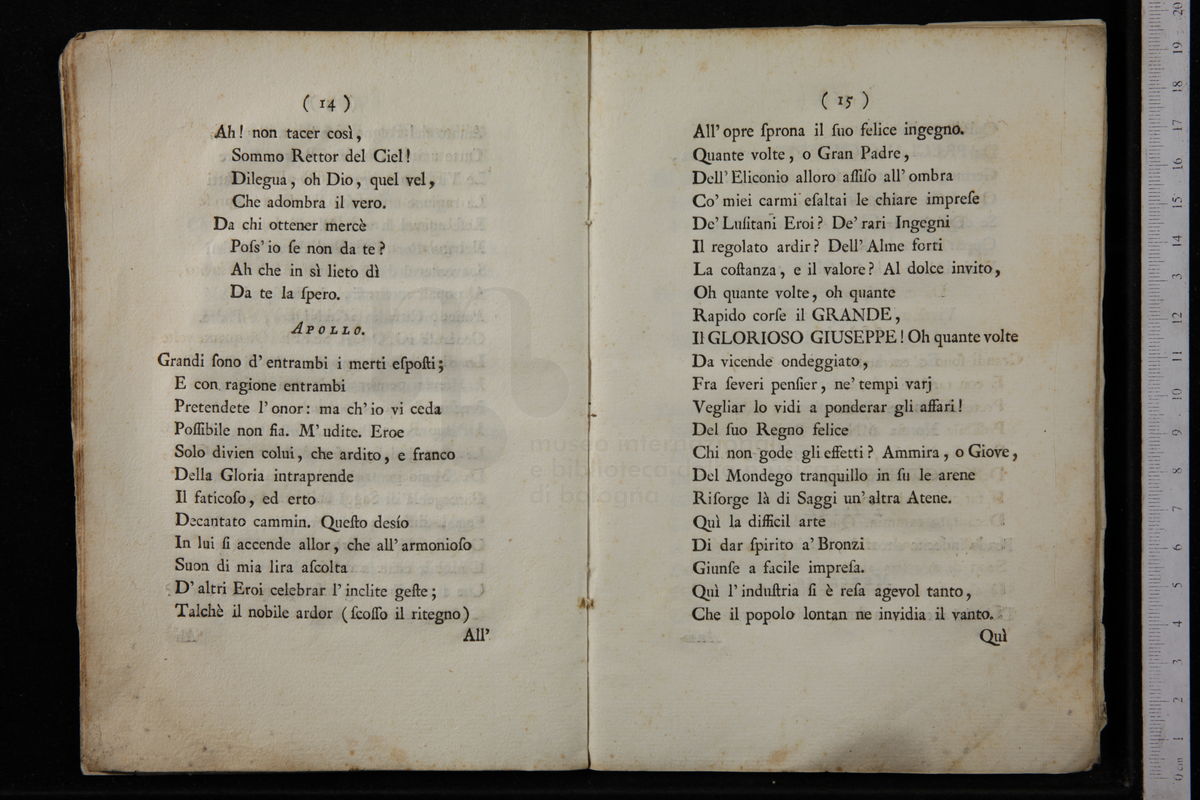 ( 14 )
Ah! non tacer così,
Sommo Rettor del Ciel!
Dilegua, oh Dio, quel vel,
Che adombra il vero.
Da chi ottener mercè
Poſs' io ſe non da te?
Ah che in sì lieto dì
Da te la ſpero.
APOLLO.
Grandi ſono d' entrambi i merti eſpoſti;
E con ragione entrambi
Pretendete l' onor: ma ch' io vi ceda
Poſſibile non fia. M' udite. Eroe
Solo divien colui, che ardito, e franco
Della Gloria intraprende
Il faticoſo, ed erto
Decantato cammin. Queſto desío
In lui ſi accende allor, che all' armonioſo
Suon di mia lira aſcolta
D' altri Eroi celebrar l' inclite geſte;
Talchè il nobile ardor (ſcoſſo il ritegno)
All'
( 15 )
All' opre ſprona il ſuo felice ingegno.
Quante volte, o Gran Padre,
Dell' Eliconio alloro aſſiſo all' ombra
Co' miei carmi eſaltai le chiare impreſe
De' Luſitani Eroi? De' rari Ingegni
Il regolato ardir? Dell' Alme forti
La coſtanza, e il valore? Al dolce invito,
Oh quante volte, oh quante
Rapido corſe il GRANDE,
Il GLORIOSO GIUSEPPE! Oh quante volte
Da vicende ondeggiato,
Fra ſeveri penſier, ne' tempi varj
Vegliar lo vidi a ponderar gli affari!
Del ſuo Regno felice
Chi non gode gli effetti? Ammira, o Giove,
Del Mondego tranquillo in ſu le arene
Riſorge là di Saggi un' altra Atene.
Quì la difficil arte
Di dar ſpirito a' Bronzi
Giunſe a facile impreſa.
Quì l' induſtria ſi è reſa agevol tanto,
Che il popolo lontan ne invidia il vanto.
Quì
museo interna
e biblioteca
di bologna